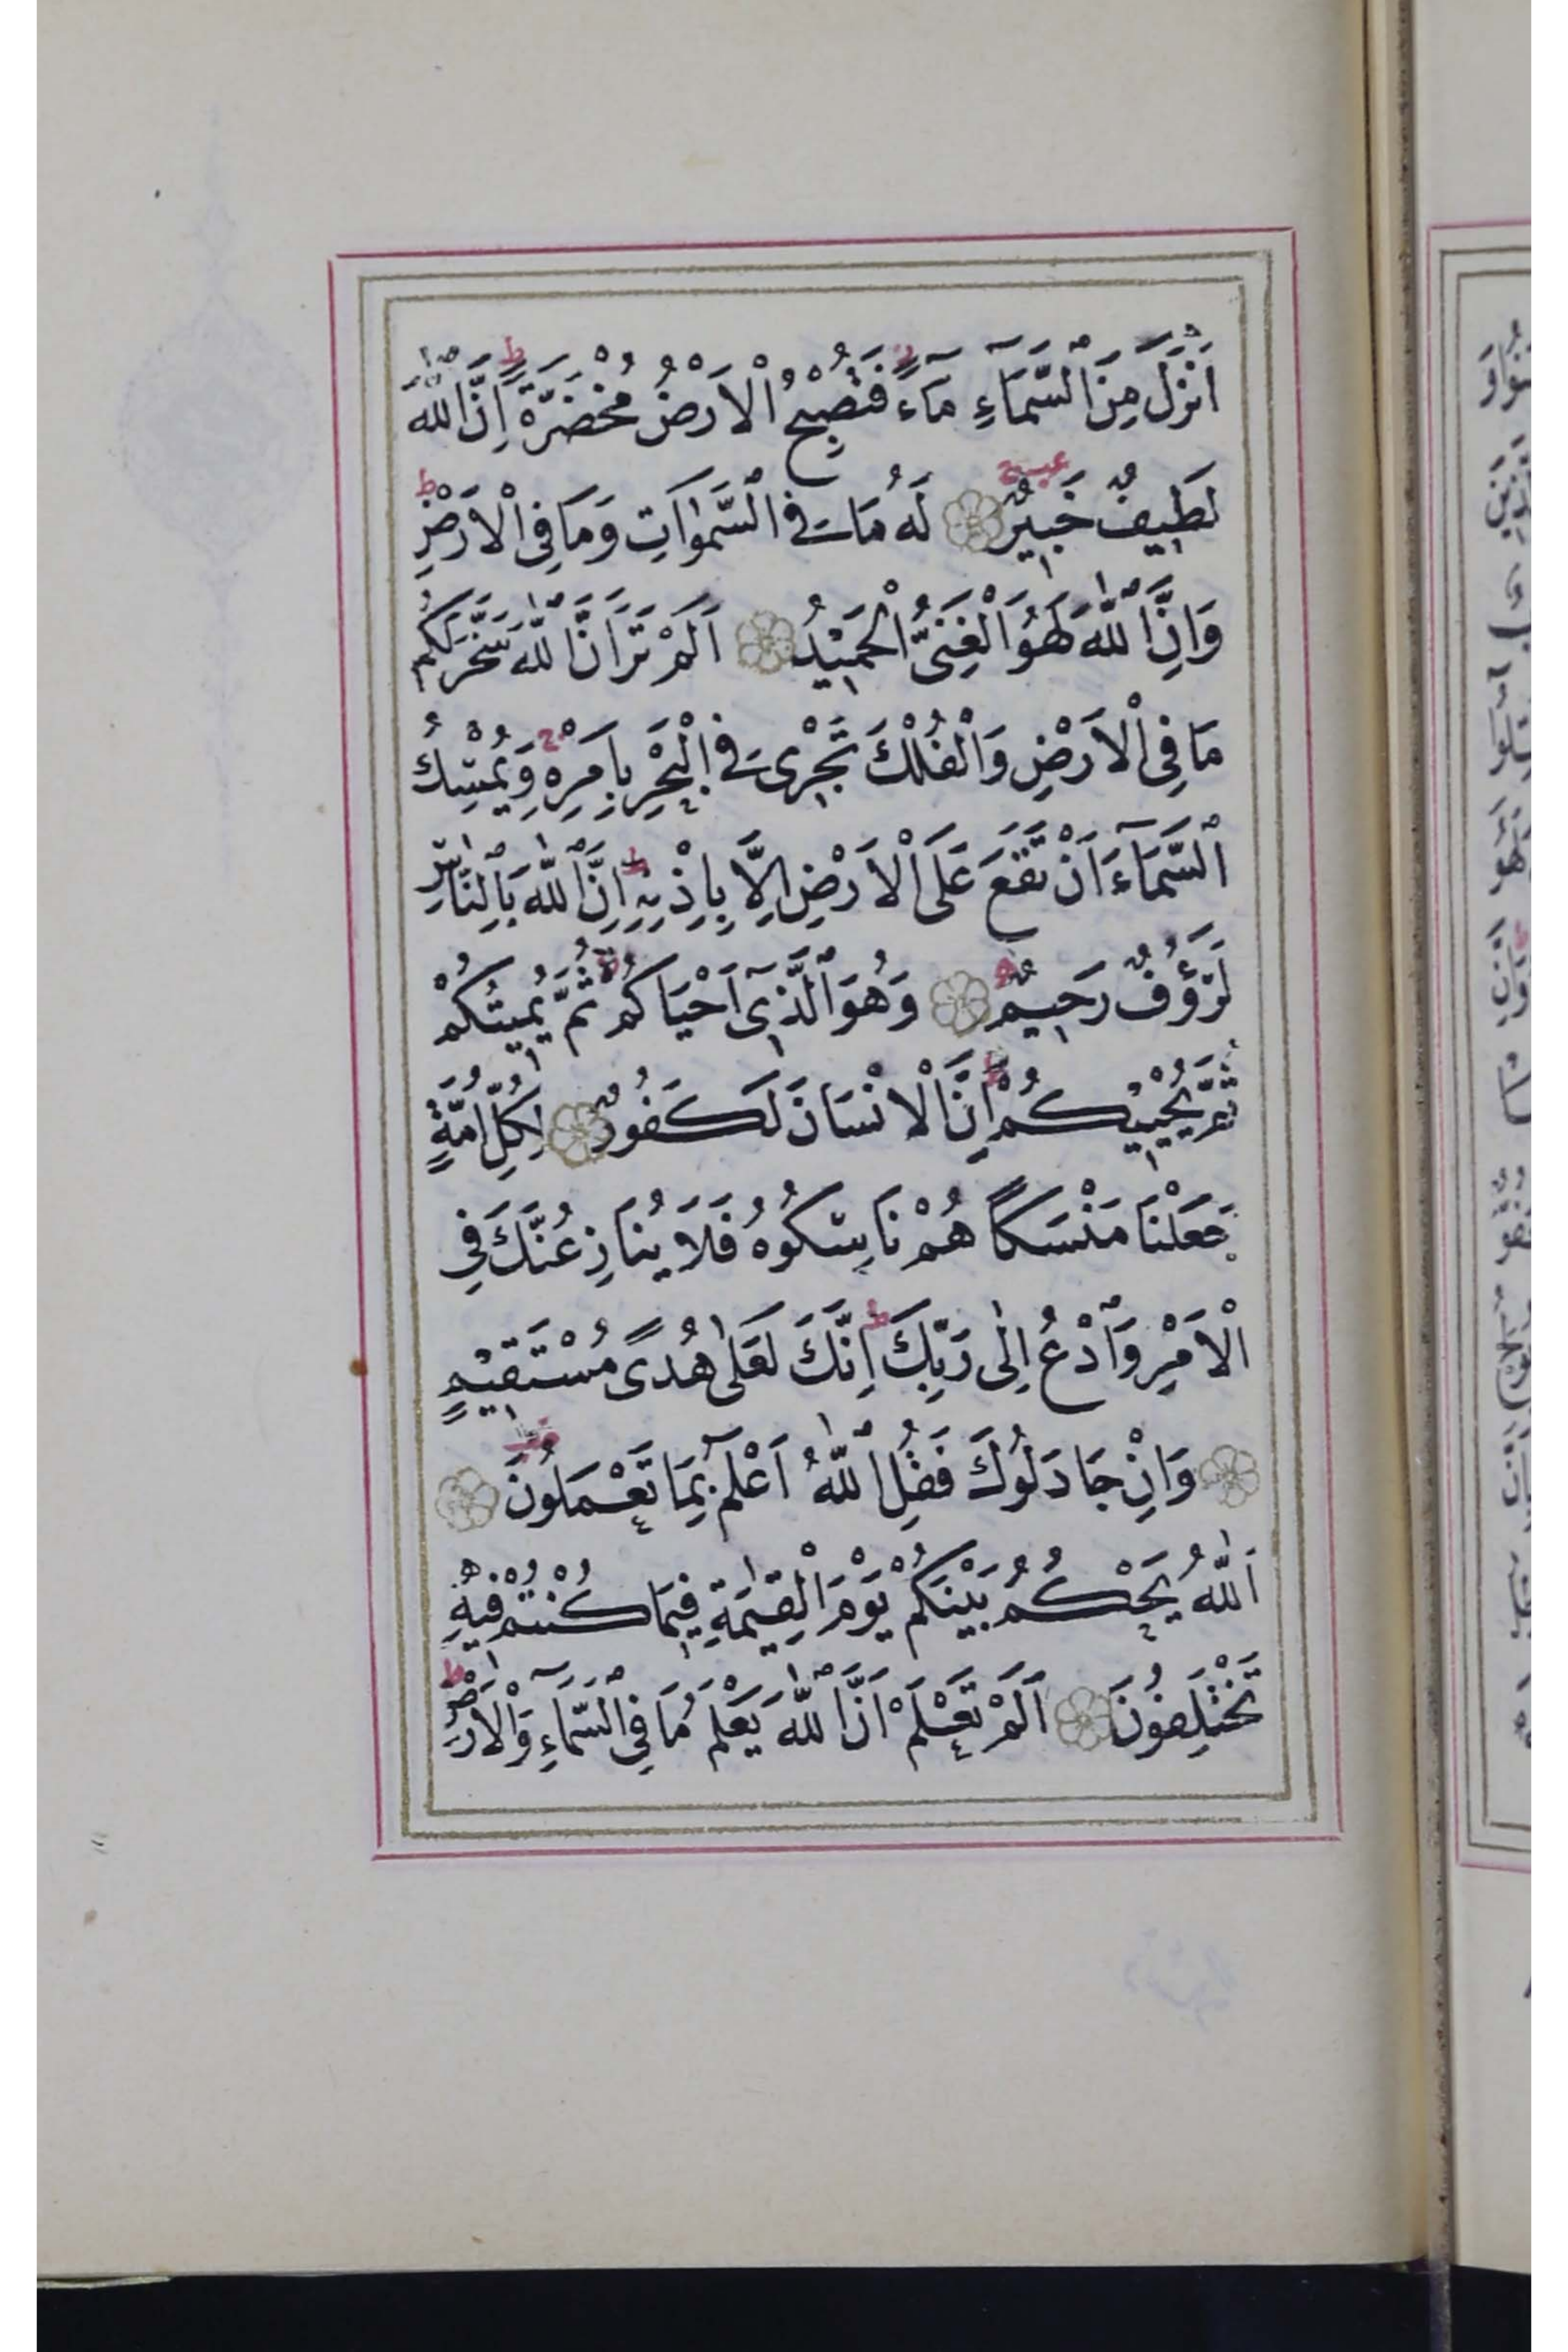 اَنْزَلَ مِنَ ٱلسَّمَآءِ مَآءً فَتُصْبِحُ الْاَرْضُ مُخْضَرَّةً ط اِنَّ ٱللّٰهَ
لَطِيفٌ خَبِيرٌ لَهُ مَا فِي ٱلسَّمٰوَاتِ وَمَا فِي الْاَرْضِ ط
وَاِنَّ ٱللّٰهَ لَهُوَ الْغَنِيُّ الْحَمِيْدُ اَلَمْ تَرَ اَنَّ ٱللّٰهَ سَخَّرَ لَكُمْ
مَا فِي الْاَرْضِ وَالْفُلْكَ تَجْرِى فِي الْبَحْرِ بِاَمْرِهِ وَيُمْسِكُ
ٱلسَّمَآءَ اَنْ تَقَعَ عَلَى الْاَرْضِ اِلَّا بِاِذْنِهِ ط اِنَّ ٱللّٰهَ بِالنَّاسِ
لَرَؤُفٌ رَحِيمٌ وَهُوَ ٱلَّذِىٓ اَحْيَاكُمْ ثُمَّ يُمِيتُكُمْ
ثُمَّ يُحْيِيْكُمْ ط اِنَّ الْاِنْسَانَ لَكَفُورٌ لِكُلِّ اُمَّةٍ
جَعَلْنَا مَنْسَكًا هُمْ نَاسِكُوهُ فَلَا يُنَازِعُنَّكَ فِي
الْاَمْرِ وَٱدْعُ اِلٰى رَبِّكَ ط اِنَّكَ لَعَلٰى هُدًى مُسْتَقِيْمٍ
وَاِنْ جَادَلُوكَ فَقُلِ ٱللّٰهُ اَعْلَمُ بِمَا تَعْمَلُونَ
اَللّٰهُ يَحْكُمُ بَيْنَكُمْ يَوْمَ الْقِيٰمَةِ فِيمَا كُنْتُمْ فِيْهِ
تَخْتَلِفُونَ اَلَمْ تَعْلَمْ اَنَّ ٱللّٰهَ يَعْلَمُ مَا فِي ٱلسَّمَآءِ وَالْاَرْضِ ط